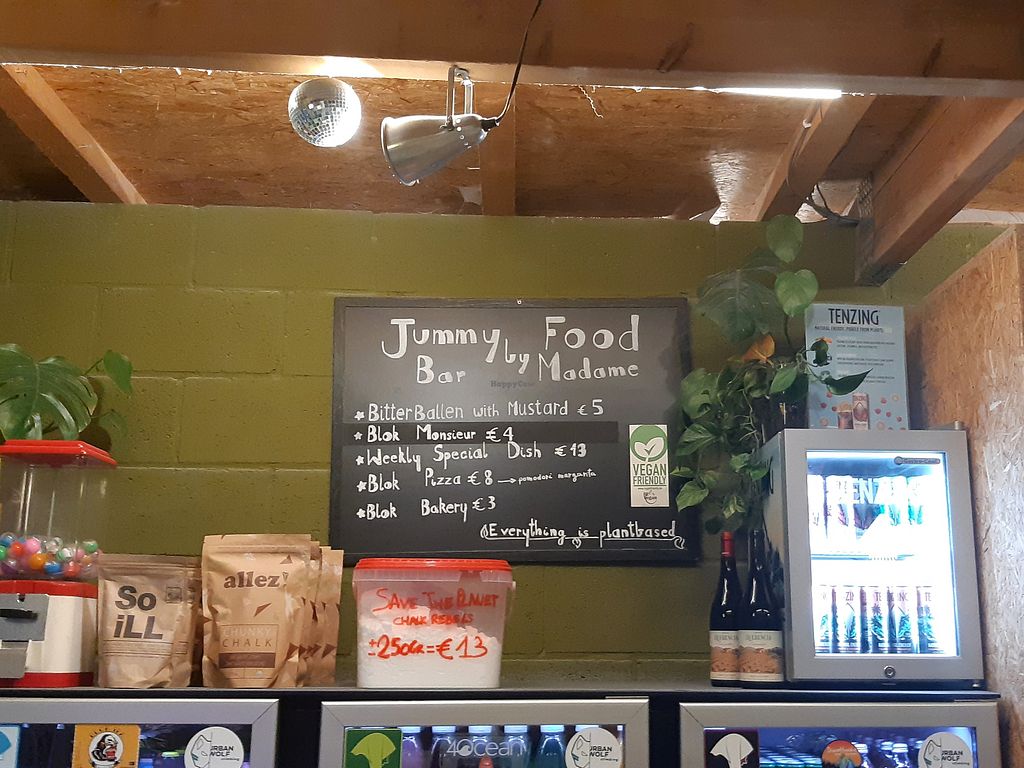 Jummy Food
by
Bar Madame
HappyCow
BitterBallen with Mustard € 5
Blok Monsieur € 4
Weekly Special Dish € 13
Blok Pizza € 8 → pomodori margarita
Blok Bakery € 3
Everything is plantbased
VEGAN
FRIENDLY
TENZING
NATURAL ENERGY, PURELY FROM PLANTS
So
iLL
allez!
CHUNKY
CHALK
SAVE THE PLANET
CHALK REBELS
±250GR = € 13
TENZING
URBAN
WOLF
4Ocean
URBAN
WOLF
URBAN
WOLF